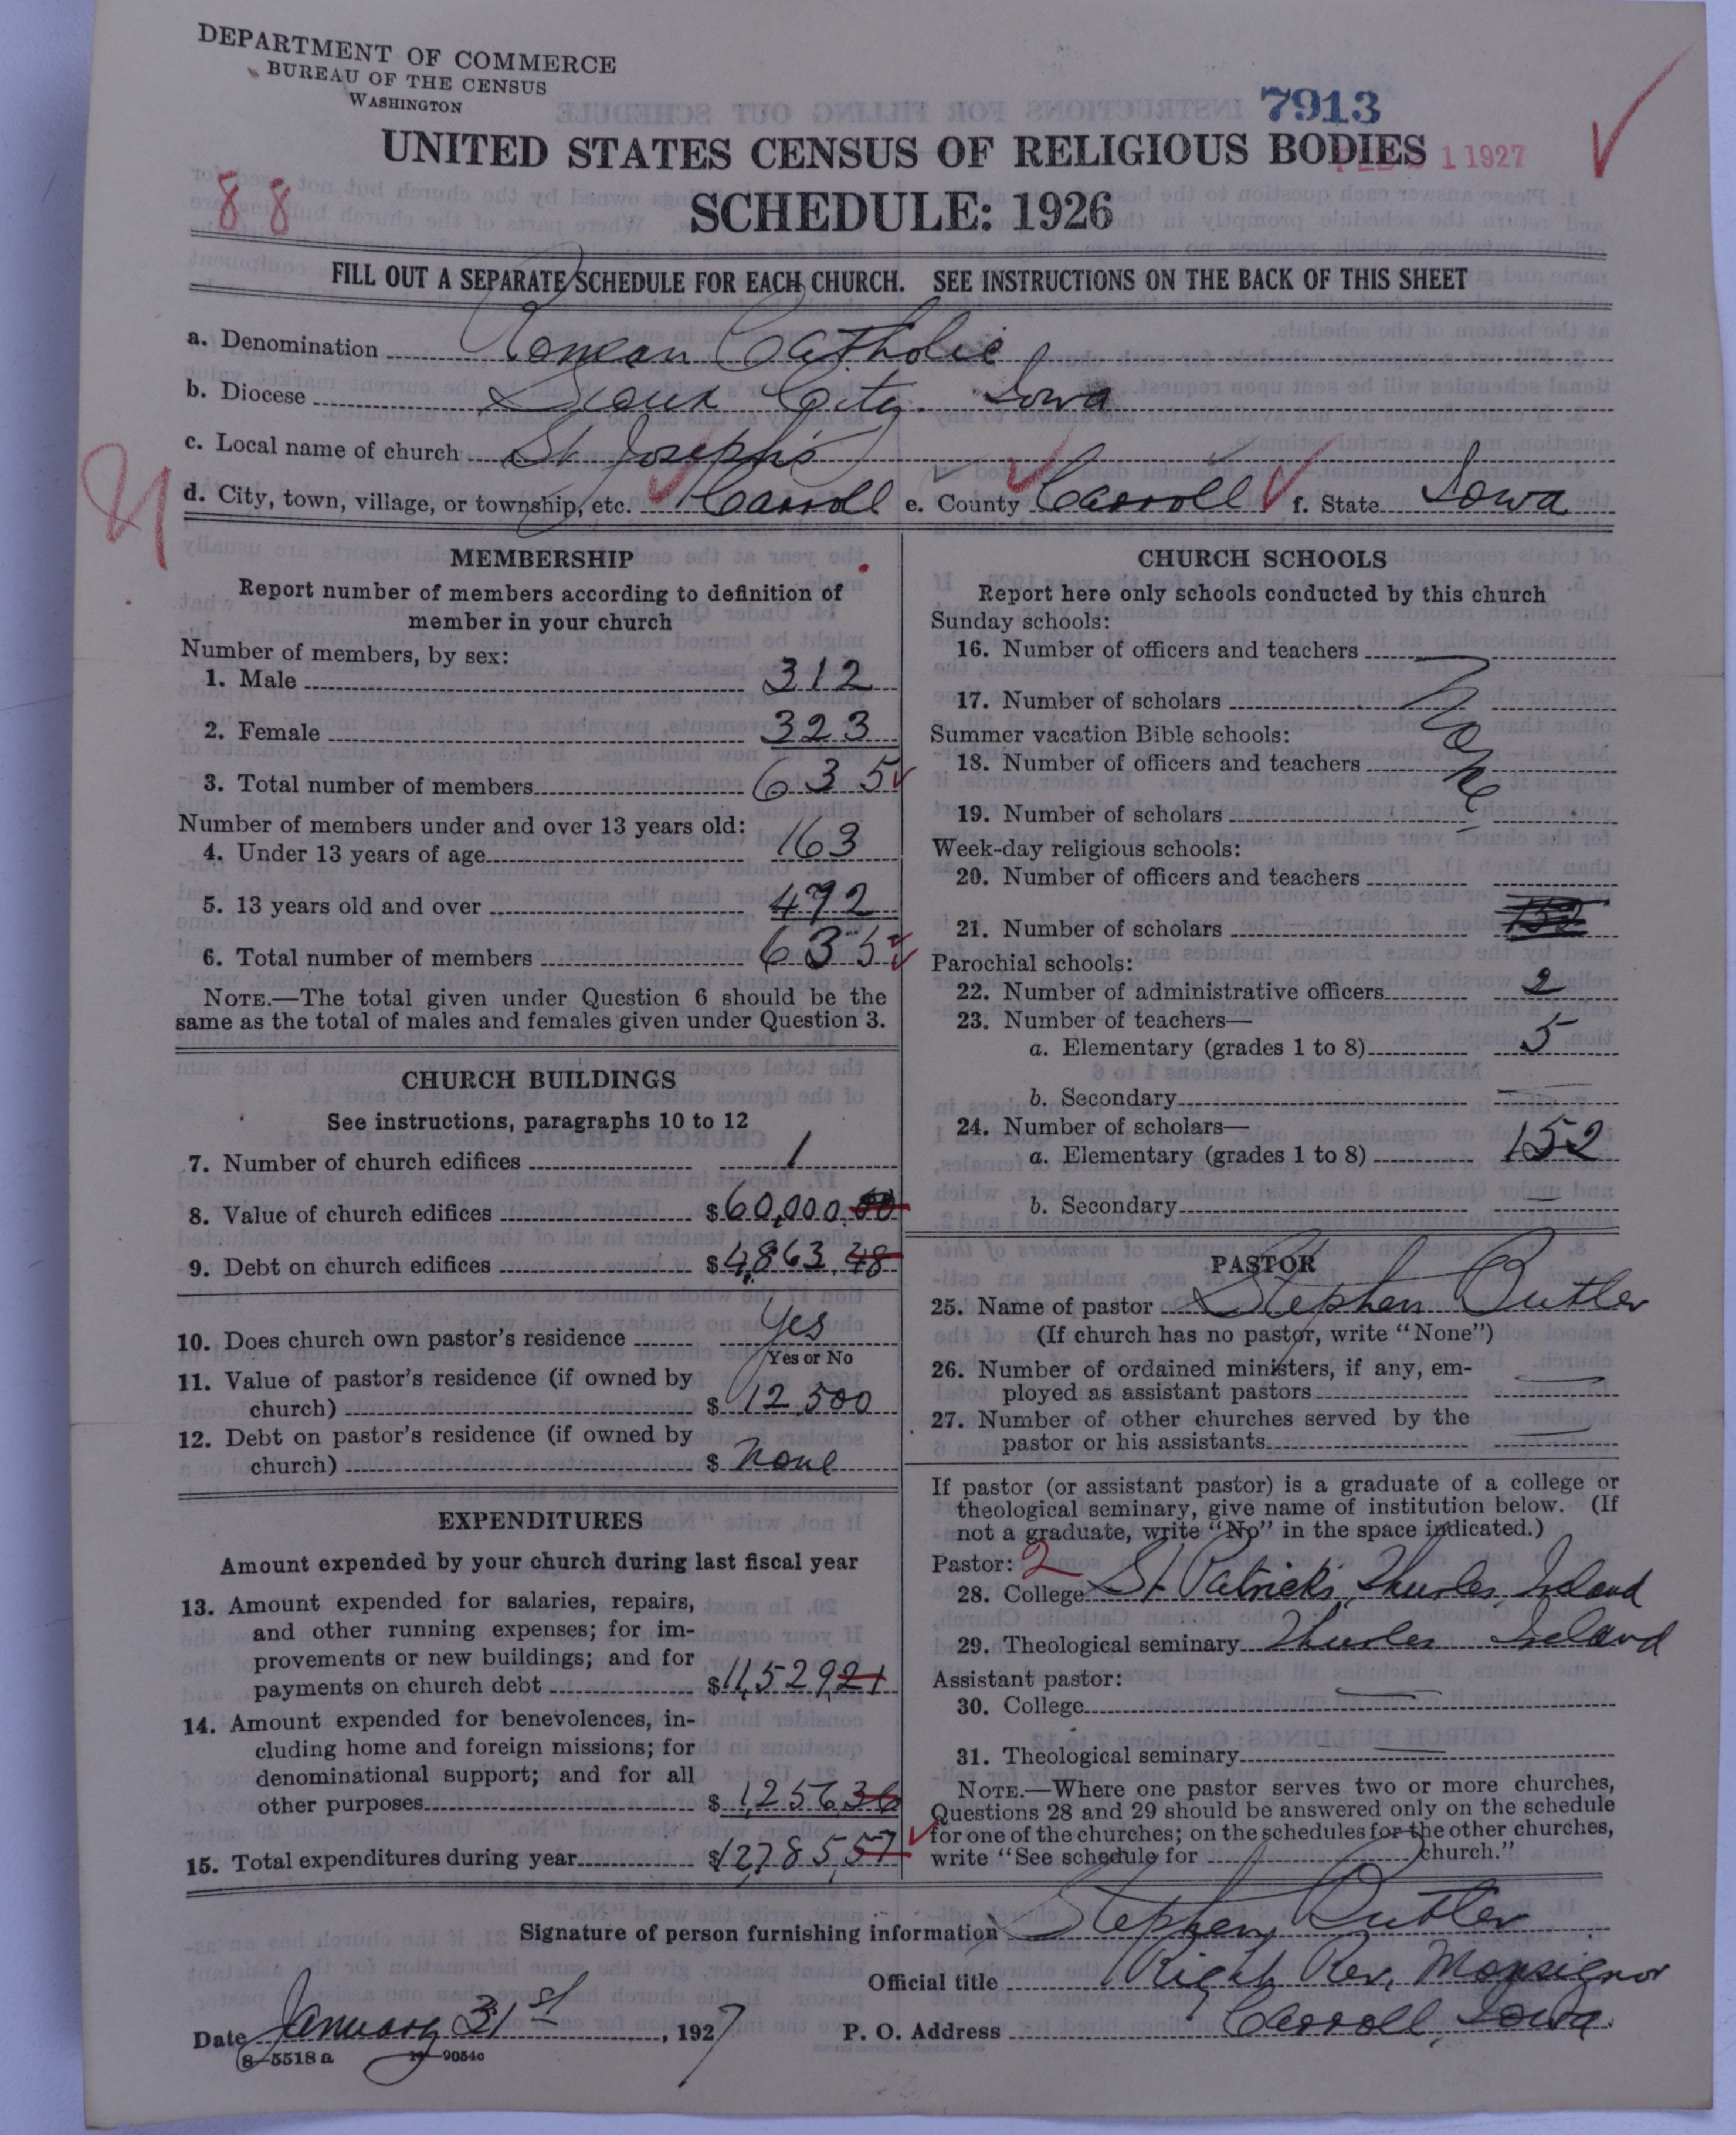 DEPARTMENT OF COMMERCE
BUREAU OF THE CENSUS
WASHINGTON
7913
UNITED STATES CENSUS OF RELIGIOUS BODIES
1 1927
88
SCHEDULE: 1926
FILL OUT A SEPARATE SCHEDULE FOR EACH CHURCH. SEE INSTRUCTIONS ON THE BACK OF THIS SHEET
a. Denomination Roman Catholic
b. Diocese Sioux City. Iowa
c. Local name of church St. Joseph's
d. City, town, village, or township, etc. Carroll e. County Carroll f. State Iowa
MEMBERSHIP
Report number of members according to definition of
member in your church
Number of members, by sex:
1. Male 312
2. Female 323
3. Total number of members 635
Number of members under and over 13 years old:
4. Under 13 years of age 163
5. 13 years old and over 472
6. Total number of members 635
NOTE.—The total given under Question 6 should be the
same as the total of males and females given under Question 3.
CHURCH BUILDINGS
See instructions, paragraphs 10 to 12
7. Number of church edifices 1
8. Value of church edifices $60,000.00
9. Debt on church edifices $4,863.48
10. Does church own pastor's residence Yes
Yes or No
11. Value of pastor's residence (if owned by
church) $ 12,500
12. Debt on pastor's residence (if owned by
church) $ None
EXPENDITURES
Amount expended by your church during last fiscal year
13. Amount expended for salaries, repairs,
and other running expenses; for im-
provements or new buildings; and for
payments on church debt $11,529,21
14. Amount expended for benevolences, in-
cluding home and foreign missions; for
denominational support; and for all
other purposes $ 1,256,36
15. Total expenditures during year $12,785,57
CHURCH SCHOOLS
Report here only schools conducted by this church
Sunday schools:
16. Number of officers and teachers
17. Number of scholars
None
Summer vacation Bible schools:
18. Number of officers and teachers
19. Number of scholars
Week-day religious schools:
20. Number of officers and teachers
21. Number of scholars 152
Parochial schools:
22. Number of administrative officers 2
23. Number of teachers—
a. Elementary (grades 1 to 8) 5
b. Secondary —
24. Number of scholars—
a. Elementary (grades 1 to 8) 152
b. Secondary —
PASTOR
25. Name of pastor Stephen Butler
(If church has no pastor, write "None")
26. Number of ordained ministers, if any, em-
ployed as assistant pastors —
27. Number of other churches served by the
pastor or his assistants —
If pastor (or assistant pastor) is a graduate of a college or
theological seminary, give name of institution below. (If
not a graduate, write "No" in the space indicated.)
Pastor: 2
28. College St. Patrick's, Thurles, Ireland
29. Theological seminary Thurles Ireland
Assistant pastor:
30. College —
31. Theological seminary —
NOTE.—Where one pastor serves two or more churches,
Questions 28 and 29 should be answered only on the schedule
for one of the churches; on the schedules for the other churches,
write "See schedule for church."
Signature of person furnishing information Stephen Butler
Official title Right Rev. Monsignor
Date January 31st, 1927 P. O. Address Carroll, Iowa.
8—5518 a 11—9054c